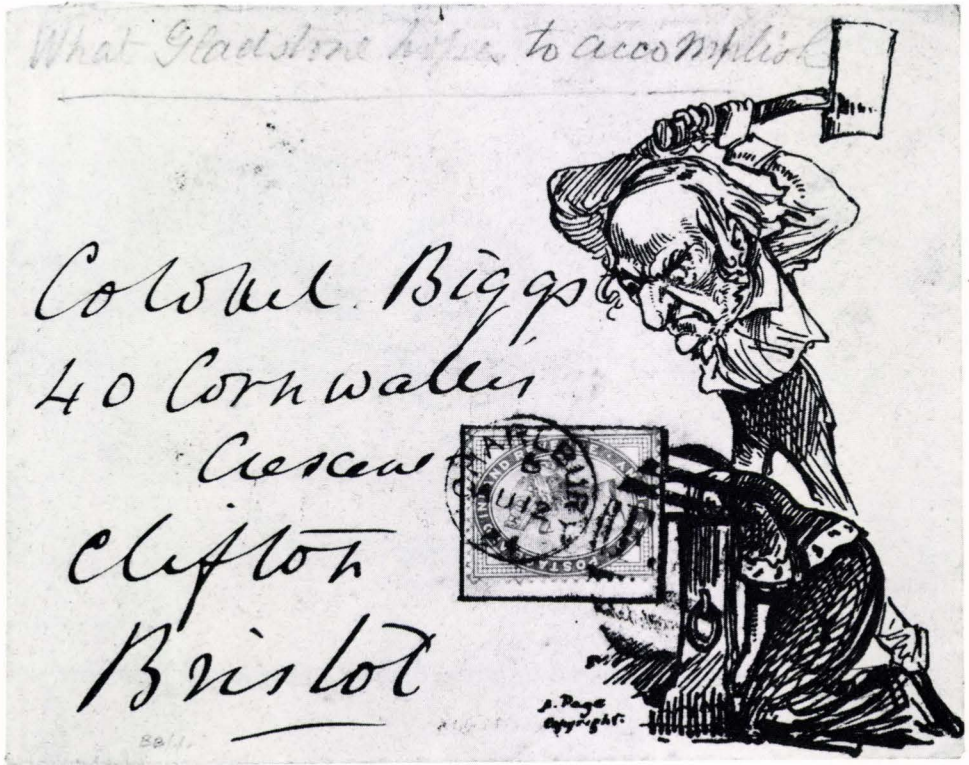 What Gladstone hopes to accomplish
Colonel Biggs
40 Cornwallis
Crescent
Clifton
Bristol
CHARLBURY
POSTAGE
A. Page
Copyright.